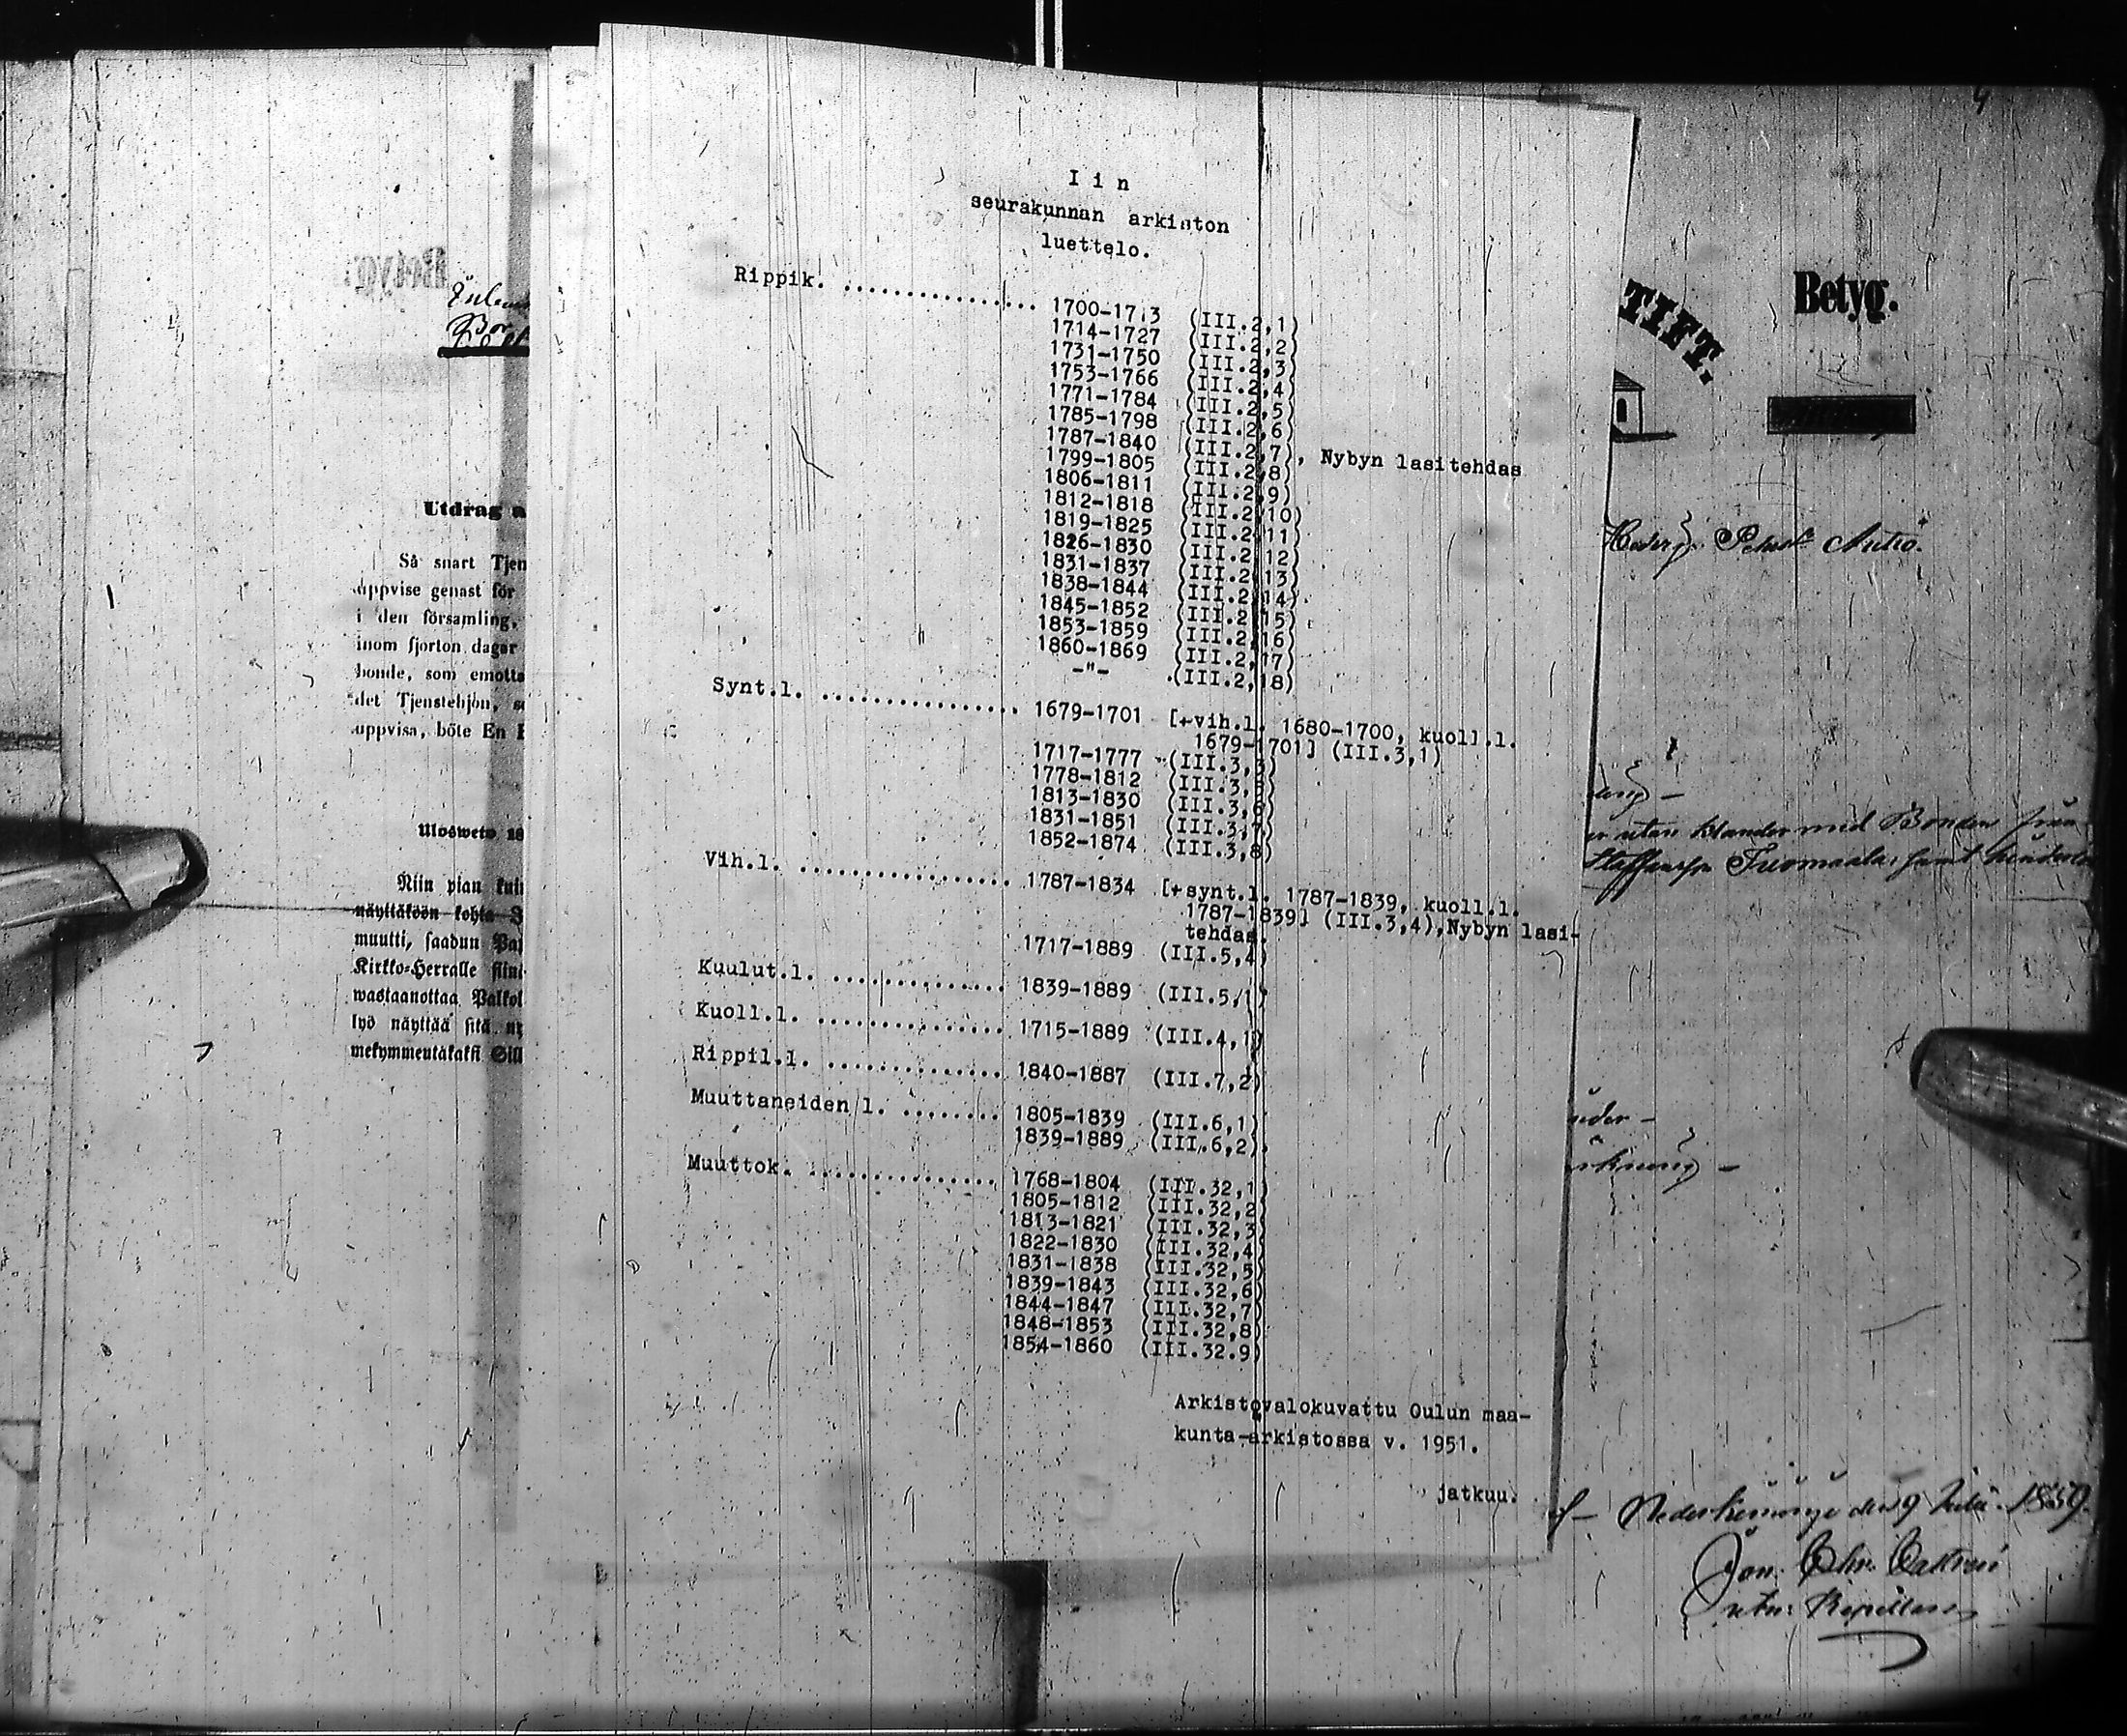 I i n
seurakunnan arkiston
luettelo.
Rippik. ................ 1700-1713 (III.2,1)
1714-1727 (III.2,2)
1731-1750 (III.2,3)
1753-1766 (III.2,4)
1771-1784 (III.2,5)
1785-1798 (III.2,6)
1787-1840 (III.2,7), Nybyn lasitehdas
1799-1805 (III.2,8)
1806-1811 (III.2,9)
1812-1818 (III.2,10)
1819-1825 (III.2,11)
1826-1830 (III.2,12)
1831-1837 (III.2,13)
1838-1844 (III.2,14)
1845-1852 (III.2,15)
1853-1859 (III.2,16)
1860-1869 (III.2,17)
-"- (III.2,18)
Synt.l. ................ 1679-1701 [+vih.l. 1680-1700, kuoll.l.
1679-1701] (III.3,1)
1717-1777 (III.3,3)
1778-1812 (III.3,5)
1813-1830 (III.3,6)
1831-1851 (III.3,7)
1852-1874 (III.3,8)
Vih.l. ................. 1787-1834 [+synt.l. 1787-1839, kuoll.l.
1787-1839] (III.3,4),Nybyn lasi-
tehdas.
1717-1889 (III.5,4)
Kuulut.l. .............. 1839-1889 (III.5,1)
Kuoll.l. ............... 1715-1889 (III.4,1)
Rippil.l. .............. 1840-1887 (III.7,2)
Muuttaneiden l. ........ 1805-1839 (III.6,1)
1839-1889 (III.6,2)
Muuttok. ............... 1768-1804 (III.32,1)
1805-1812 (III.32,2)
1813-1821 (III.32,3)
1822-1830 (III.32,4)
1831-1838 (III.32,5)
1839-1843 (III.32,6)
1844-1847 (III.32,7)
1848-1853 (III.32,8)
1854-1860 (III.32.9)
Arkistovalokuvattu Oulun maa-
kunta-arkistossa v. 1951.
jatkuu.
Utdrag a
Så snart Tjen
uppvise genast för
i den församling,
inom fjorton dagar
bonde, som emotta
det Tjenstehjon, s
uppvisa, böte En
Ulosweto
Niin pian kuin
näyttäköön kohta
muutti, saadun
Kirkko-Herralle
wastaanottaa Palkol
lyö näyttää sitä
mekymmentäkaksi
TIFT.
Betyg.
utan klander med Bonden
Tuomaala, samt
1859.